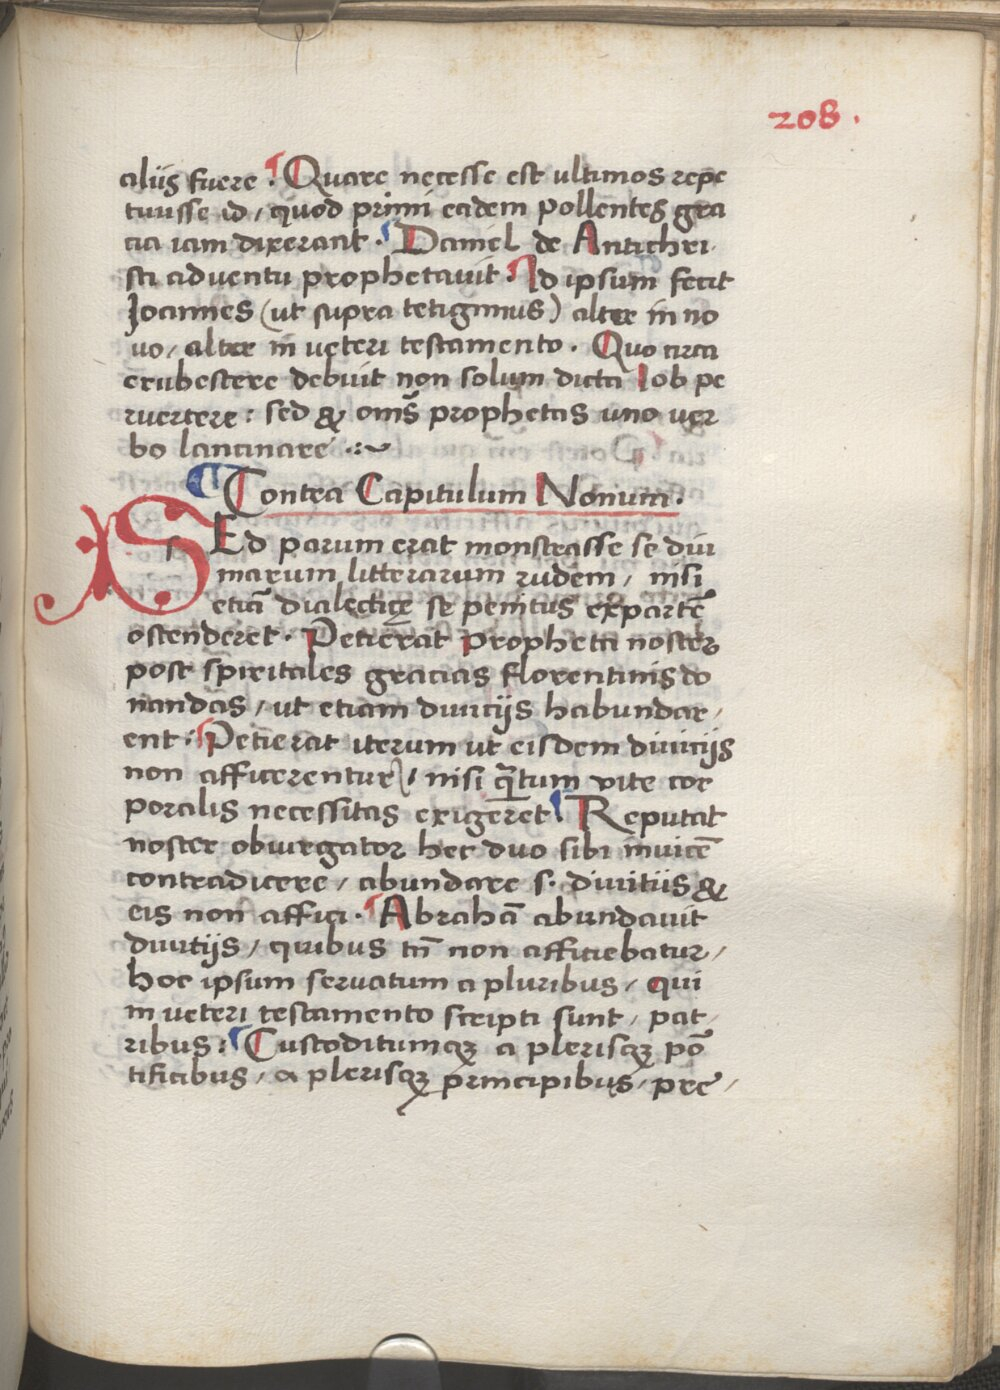 208.
aliis fuere. Quare necesse est ultimos repe
tiuisse id, quod primi eadem pollentes gra
tia iam dixerant. Daniel de Antichri
sti aduentu prophetauit. Id ipsum fecit
Joannes (ut supra tetigimus) alter in no
uo, alter in ueteri testamento. Quo circa
erubescere debuit non solum dicta Iob pe
ruertere: sed & om̄s prophetas uno uer
bo lancinare
Contra Capitulum Nonum.
SEd parum erat monstrasse se diui
marum litterarum rudem, nisi
etiā dialecticę se penitus expartē
ostenderet. Petierat propheta noster
post spiritales gracias florentinis do
nandas, ut etiam diuicijs habundar,
ent: Petierat iterum ut eisdem diuicijs
non afficerentur), nisi q̄tum vite cor
poralis necessitas exigeret Reputat
noster obiurgator hec duo sibi inuicē
contradicere, abundare s. diuitiis &
eis non affici. Abrahā abundauit
diuitijs, quibus tn̄ non afficiebatur,
hoc ipsum seruatum a pluribus, qui
in ueteri testamento scripti sunt, pat,
ribus: Custoditumqꝫ a plerisqꝫ pō
tificibus, a plerisqꝫ principibus, pre,